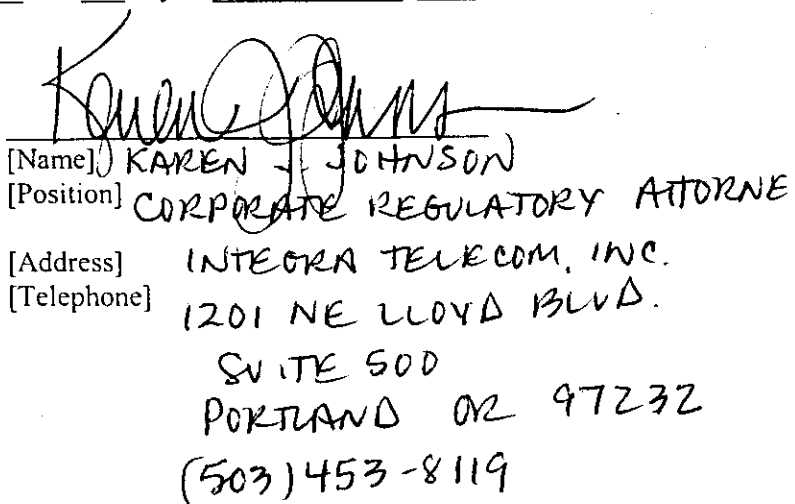 Karen J Johnson
[Name] KAREN J. JOHNSON
[Position] CORPORATE REGULATORY ATTORNE
[Address] INTEGRA TELECOM, INC.
[Telephone] 1201 NE LLOYD BLVD.
SUITE 500
PORTLAND OR 97232
(503) 453-8119